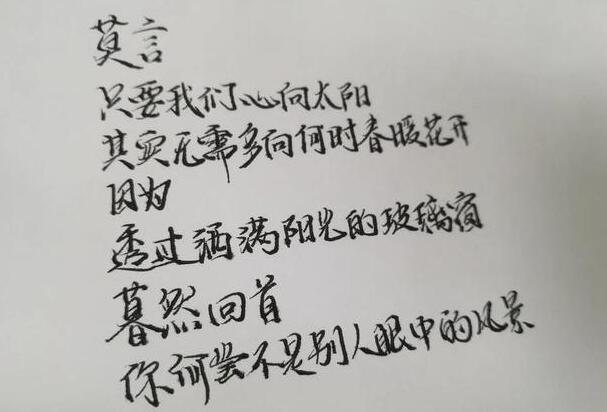 莫言
只要我们心向太阳
其实无需多问何时春暖花开
因为
透过洒满阳光的玻璃窗
暮然回首
你何尝不是别人眼中的风景